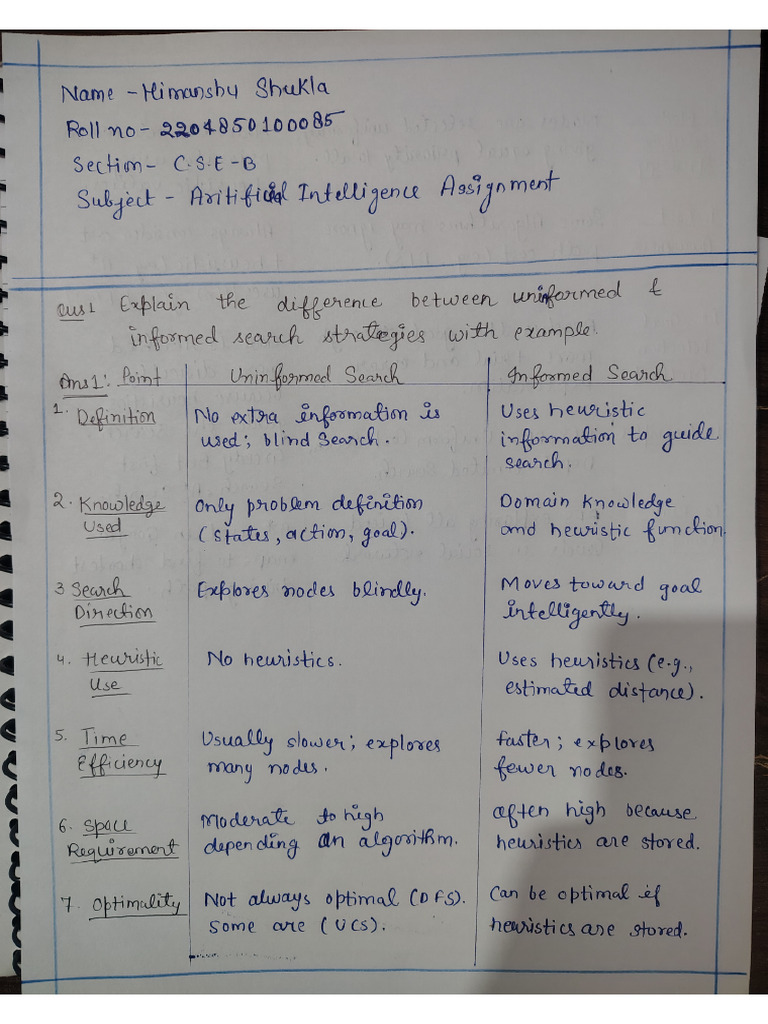 Name - Himanshu Shukla
Roll no - 2204850100085
Section - C.S.E-B
Subject - Aritificial Intelligence Assignment
Qus1 Explain the difference between uninformed &
informed search strategies with example.
Ans1: Point Uninformed Search Informed Search
1. Definition
No extra information is
used; blind Search.
Uses heuristic
information to guide
search.
2. Knowledge
Used
Only problem definition
(states, action, goal).
Domain knowledge
and heuristic function.
3 Search
Direction
Explores nodes blindly.
Moves toward goal
intelligently.
4. Heuristic
Use
No heuristics.
Uses heuristics (e.g.,
estimated distance).
5. Time
Efficiency
Usually slower; explores
many nodes.
faster; explores
fewer nodes.
6. Space
Requirement
Moderate to high
depending on algorithm.
often high because
heuristics are stored.
7. Optimality
Not always optimal (DFS).
Some are (UCS).
Can be optimal if
heuristics are stored.